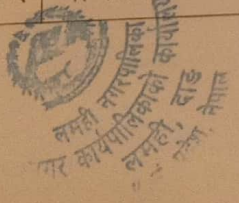 लमही नगरपालिका
नगर कार्यपालिकाको कार्यालय
लमही, दाङ
प्रदेश, नेपाल